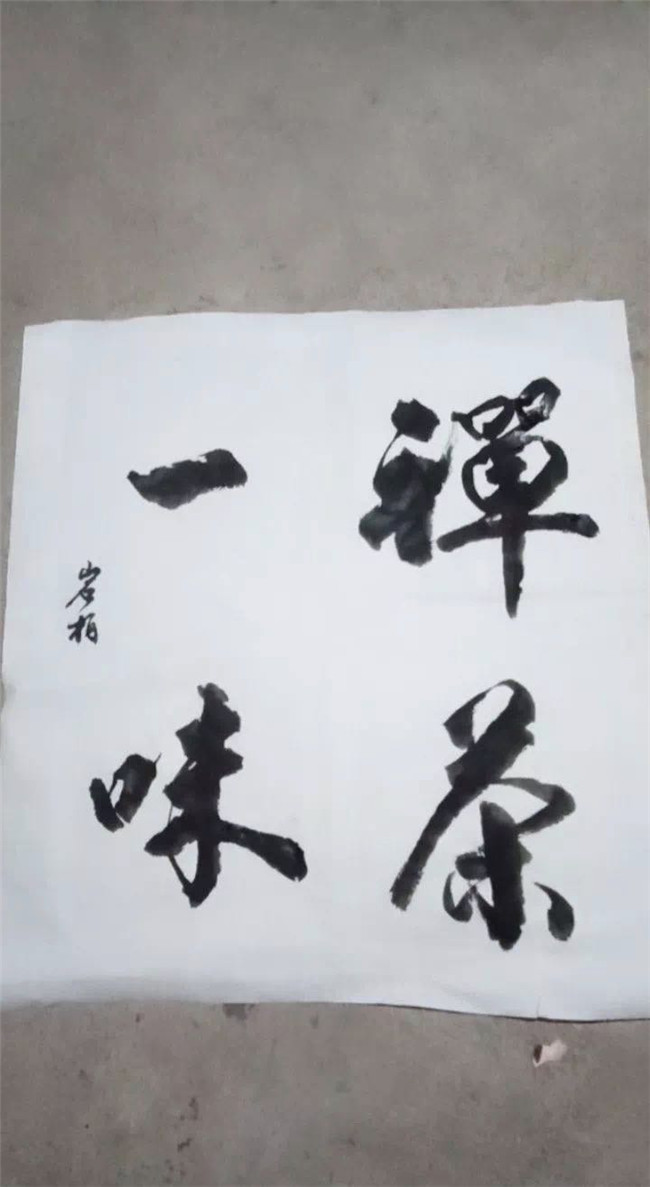 禪茶
一味
岩柏